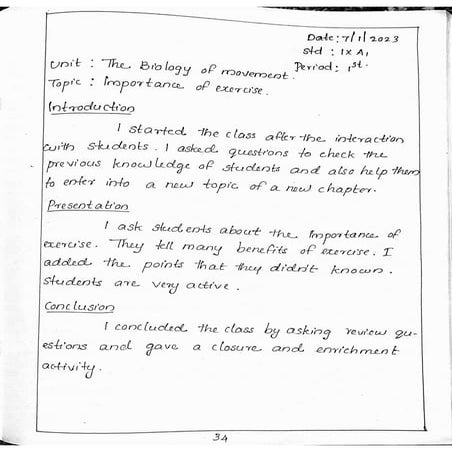 Date: 7/1/2023
Std : IX A1
Unit : The Biology of movement. Period: 1st.
Topic : Importance of exercise.
Introduction
I started the class after the interaction
with students. I asked questions to check the
previous knowledge of students and also help them
to enter into a new topic of a new chapter.
Presentation
I ask students about the importance of
exercise. They tell many benefits of exercise. I
added the points that they didn't known.
Students are very active.
Conclusion
I concluded the class by asking review qu-
estions and gave a closure and enrichment
activity.
34